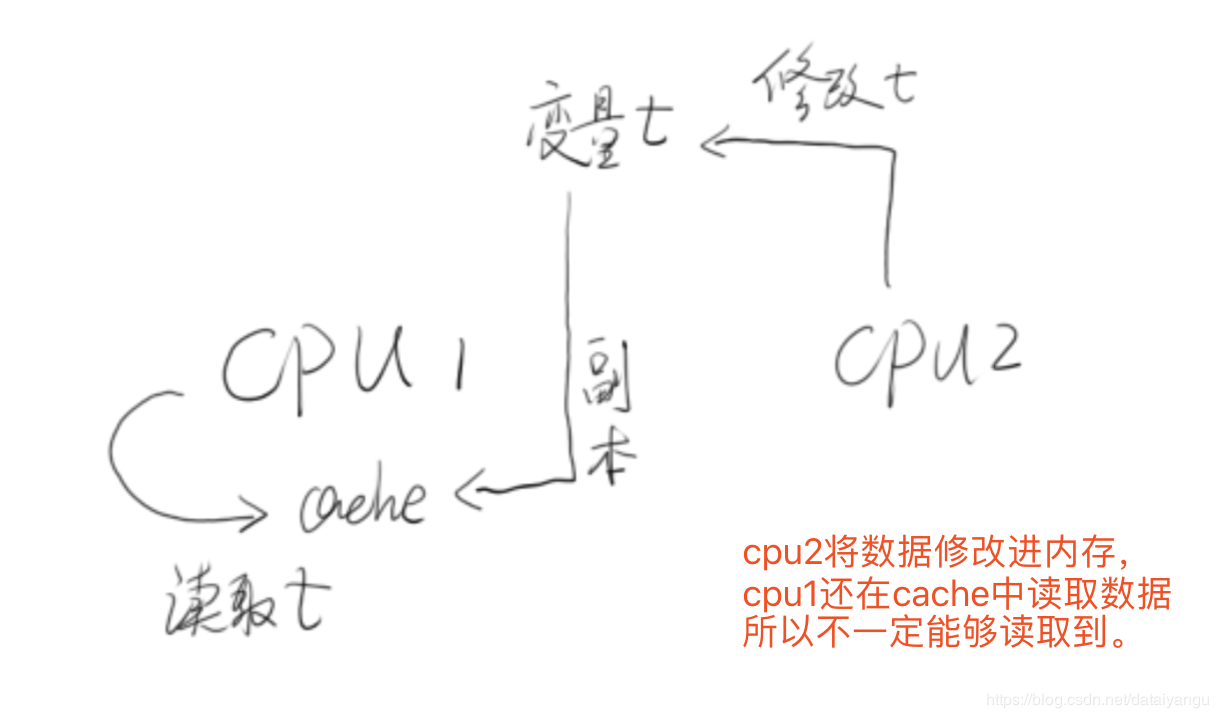 修改t
变量t
CPU1
CPU2
副
本
cache
读取t
cpu2将数据修改进内存，
cpu1还在cache中读取数据
所以不一定能够读取到。
https://blog.csdn.net/dataiyangu